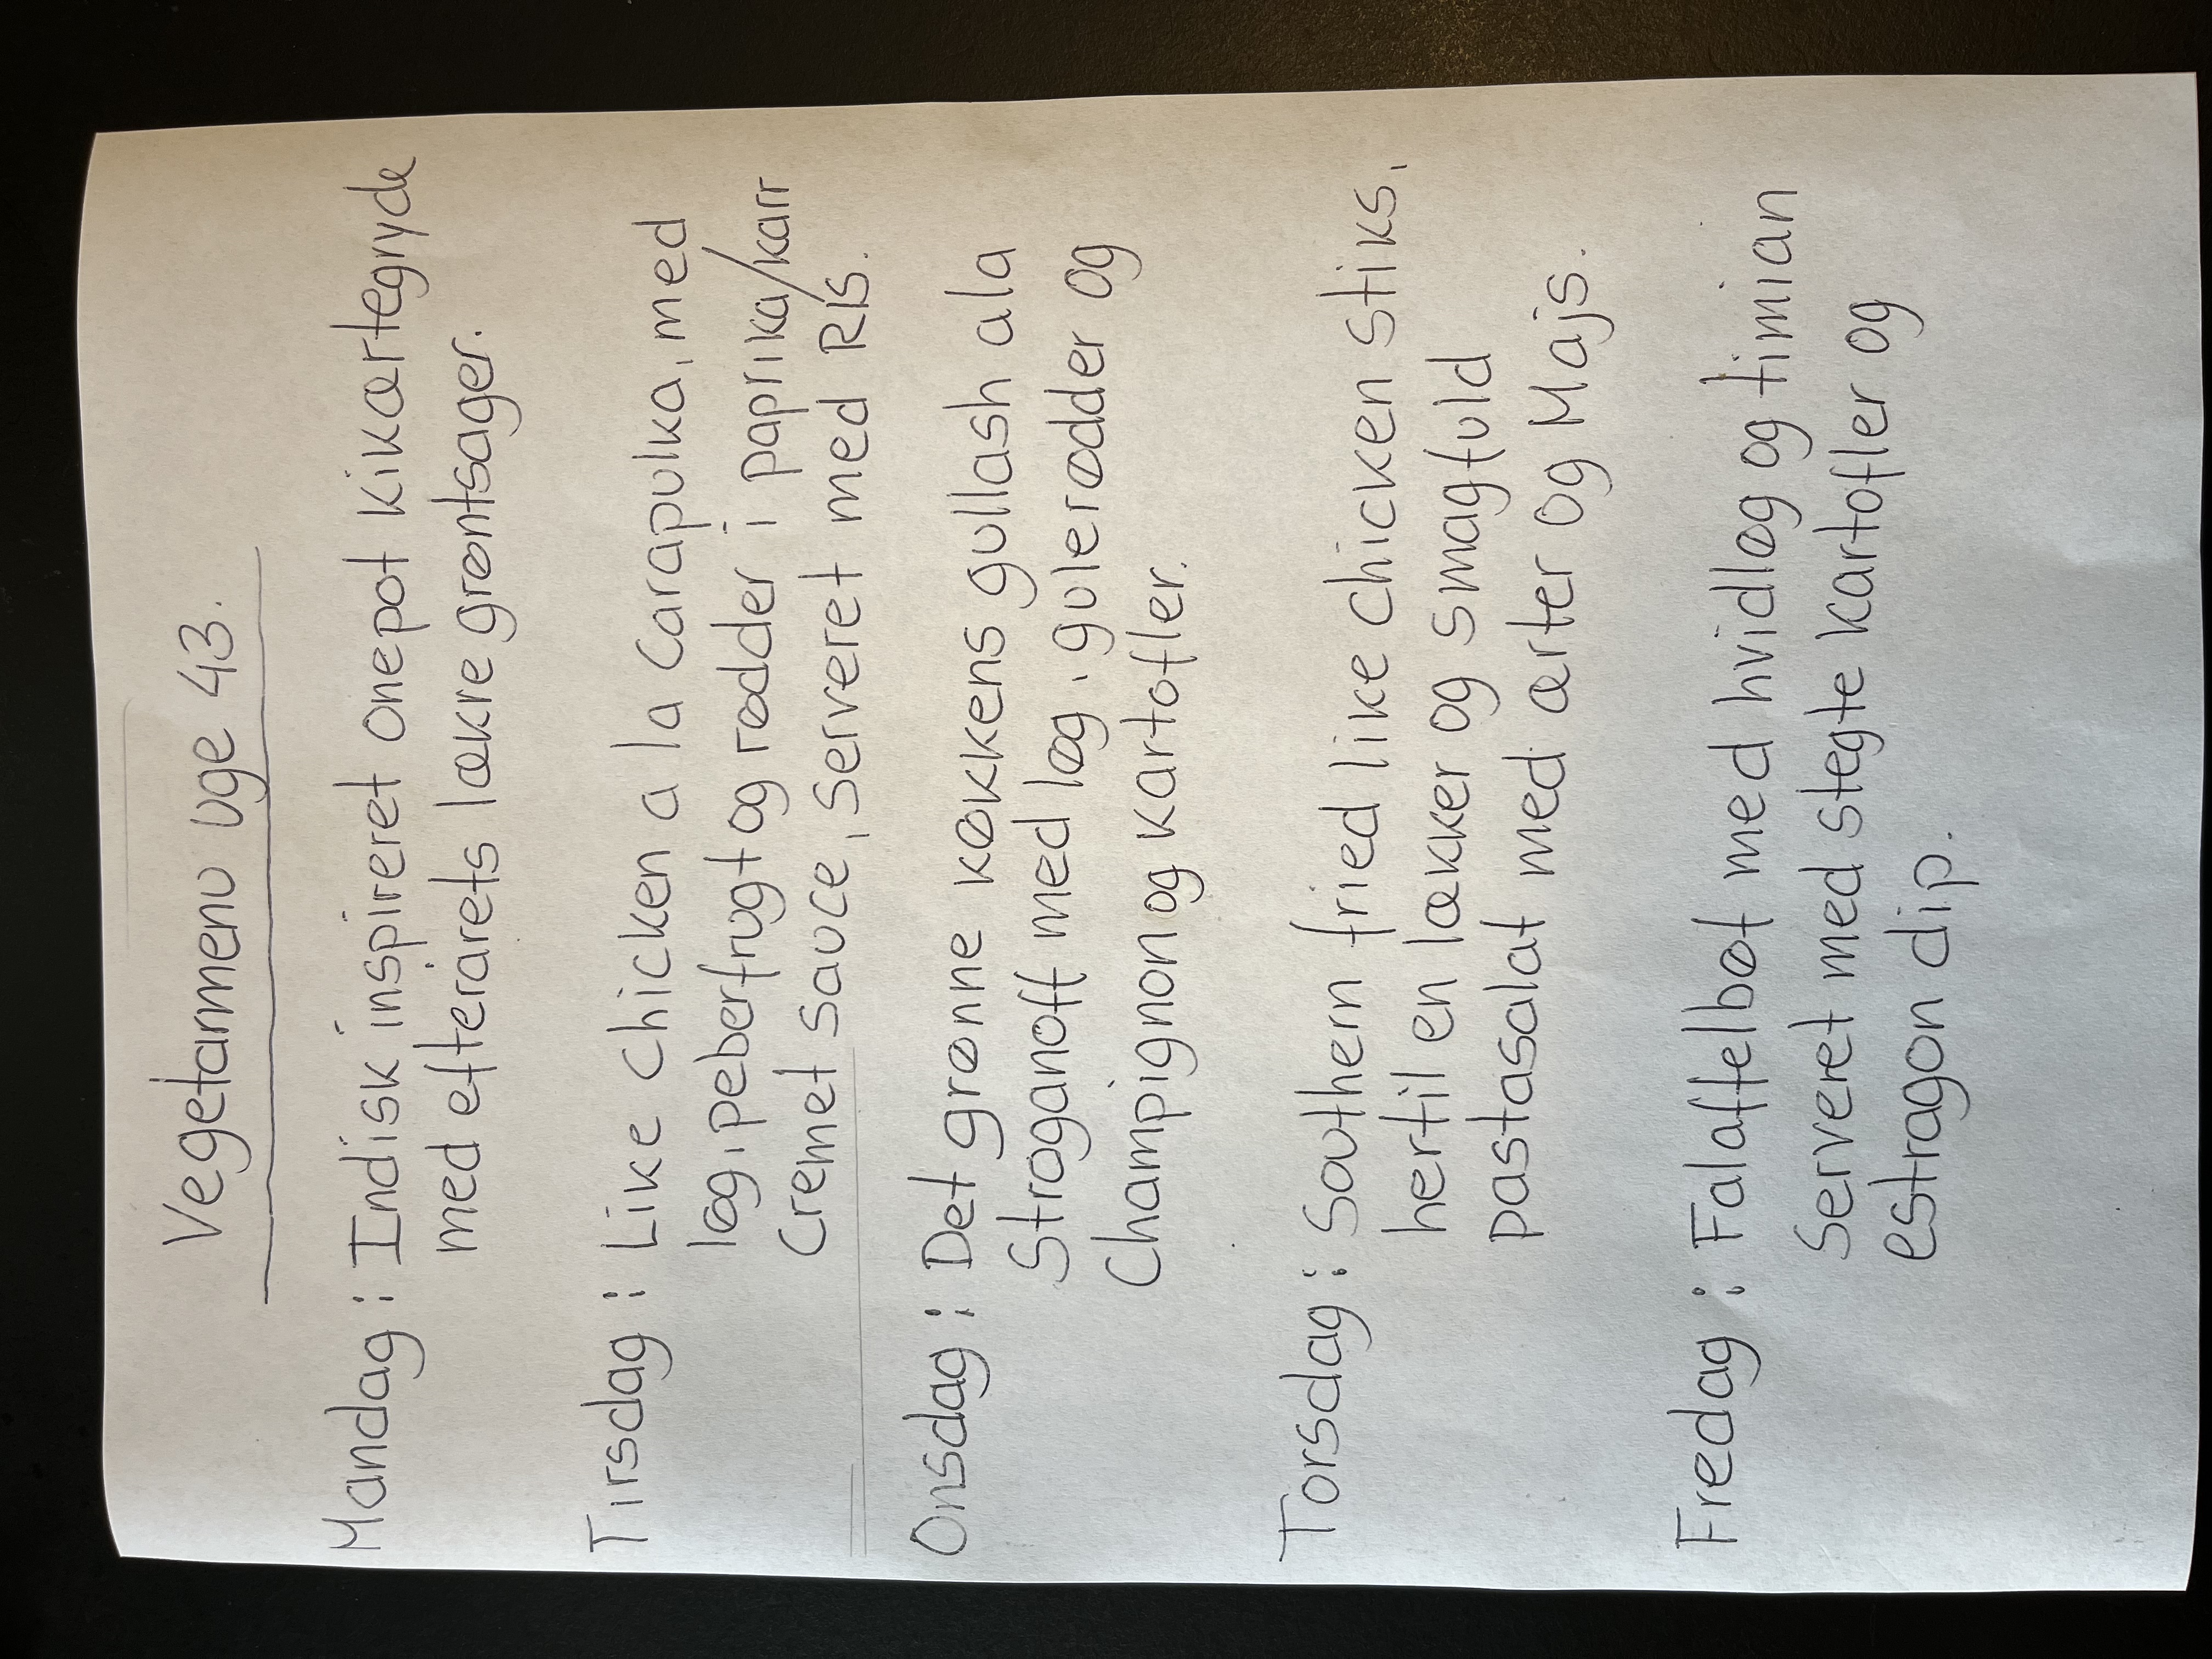 Vegetarmenu uge 43.
Mandag : Indisk inspireret onepot kikærtegryde
med efterårets lækre grøntsager.
Tirsdag : Like chicken a la Carapulka, med
løg, peberfrugt og rødder i paprika/karr
cremet sauce, serveret med RIS.
Onsdag : Det grønne køkkens gullash ala
Stroganoff med løg, gulerødder og
Champignon og kartofler.
Torsdag : Southern fried like chicken stiks,
hertil en lækker og smagfuld
pastasalat med ærter og Majs.
Fredag : Falaffelbøf med hvidløg og timian
Serveret med stegte kartofler og
estragon dip.